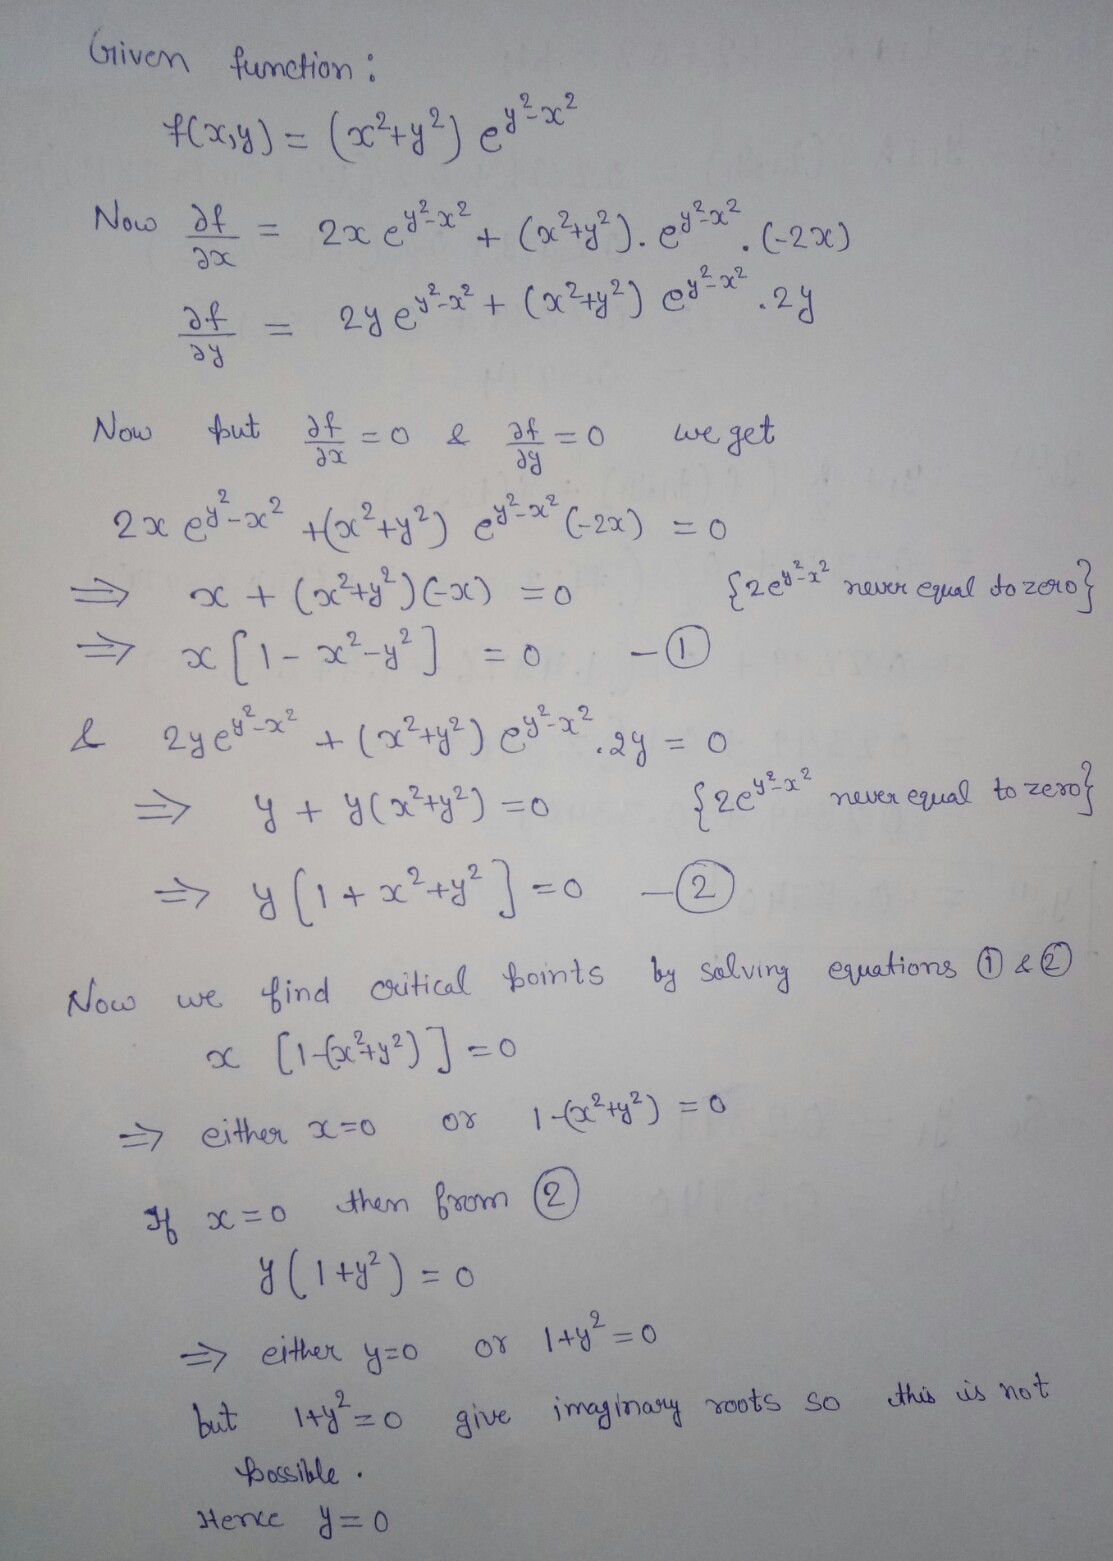 Given function :
f(x,y) = (x²+y²) e^{y²-x²}
Now ∂f/∂x = 2x e^{y²-x²} + (x²+y²). e^{y²-x²} . (-2x)
∂f/∂y = 2y e^{y²-x²} + (x²+y²) e^{y²-x²} . 2y
Now put ∂f/∂x = 0 & ∂f/∂y = 0 we get
2x e^{y²-x²} +(x²+y²) e^{y²-x²} (-2x) = 0
⇒ x + (x²+y²)(-x) = 0 {2e^{y²-x²} never equal to zero}
⇒ x [1 - x²-y²] = 0 - ①
& 2y e^{y²-x²} + (x²+y²) e^{y²-x²} . 2y = 0
⇒ y + y(x²+y²) = 0 {2e^{y²-x²} never equal to zero}
⇒ y [1 + x²+y²] = 0 - ②
Now we find critical points by solving equations ① & ②
x [1-(x²+y²)] = 0
⇒ either x=0 or 1-(x²+y²) = 0
If x = 0 then from ②
y (1+y²) = 0
⇒ either y=0 or 1+y² = 0
but 1+y² = 0 give imaginary roots so this is not
possible .
Hence y = 0